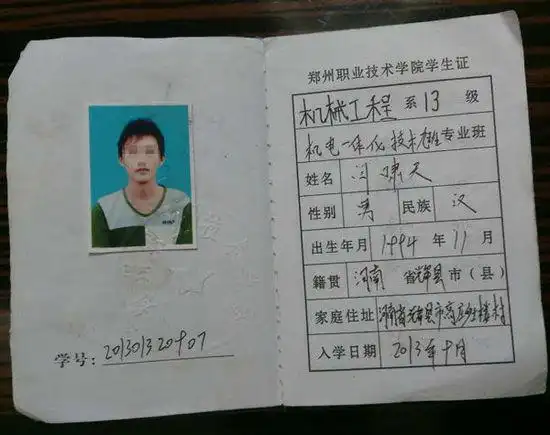 学号: 201301320907
郑州职业技术学院学生证
机械工程 系 13 级
机电一体化技术 专业 班
姓名 闫 天
性别 男 民族 汉
出生年月 1994 年 11 月
籍贯 河南 省 辉县 市(县)
家庭住址 河南省辉县市 楼村
入学日期 2013年9月